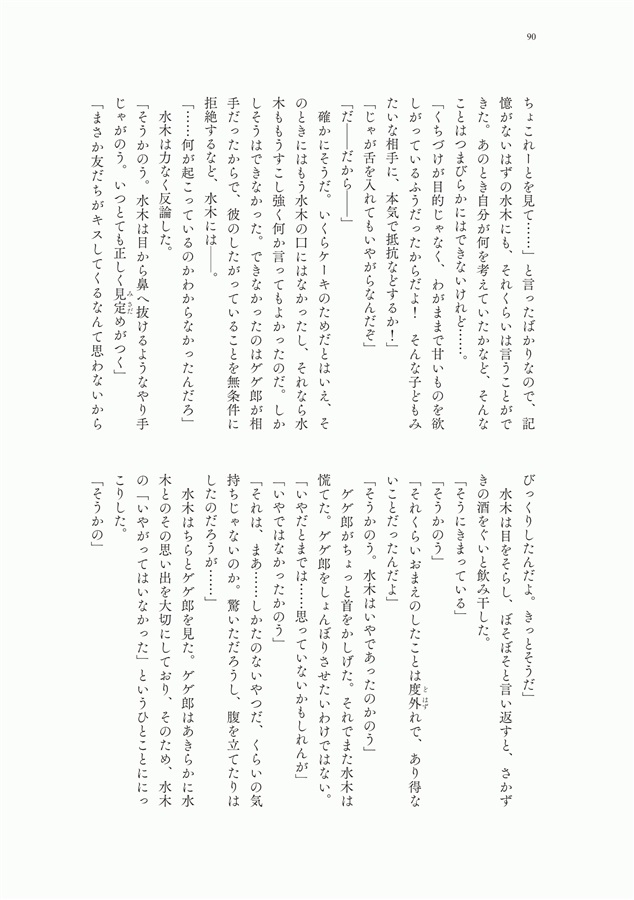 90
ちょこれーとを見て……」と言ったばかりなので、記
憶がないはずの水木にも、それくらいは言うことがで
きた。あのとき自分が何を考えていたかなど、そんな
ことはつまびらかにはできないけれど……。
「くちづけが目的じゃなく、わがままで甘いものを欲
しがっているふうだったからだよ！　そんな子どもみ
たいな相手に、本気で抵抗などするか！」
「じゃが舌を入れてもいやがらなんだぞ」
「だ――だから――」
　確かにそうだ。いくらケーキのためだとはいえ、そ
のときにはもう水木の口にはなかったし、それなら水
木ももうすこし強く何か言ってもよかったのだ。しか
しそうはできなかった。できなかったのはゲゲ郎が相
手だったからで、彼のしたがっていることを無条件に
拒絶するなど、水木には――。
「……何が起こっているのかわからなかったんだろ」
　水木は力なく反論した。
「そうかのう。水木は目から鼻へ抜けるようなやり手
じゃがのう。いつとても正しく見定めがつく」
みさだ
「まさか友だちがキスしてくるなんて思わないから
びっくりしたんだよ。きっとそうだ」
　水木は目をそらし、ぼそぼそと言い返すと、さかず
きの酒をぐいと飲み干した。
「そうにきまっている」
「そうかのう」
「それくらいおまえのしたことは度外れで、あり得な
とはず
いことだったんだよ」
「そうかのう。水木はいやであったのかのう」
　ゲゲ郎がちょっと首をかしげた。それでまた水木は
慌てた。ゲゲ郎をしょんぼりさせたいわけではない。
「いやだとまでは……思っていないかもしれんが」
「いやではなかったかのう」
「それは、まあ……しかたのないやつだ、くらいの気
持ちじゃないのか。驚いただろうし、腹を立てたりは
したのだろうが……」
　水木はちらとゲゲ郎を見た。ゲゲ郎はあきらかに水
木とのその思い出を大切にしており、そのため、水木
の「いやがってはいなかった」というひとことににっ
こりした。
「そうかの」